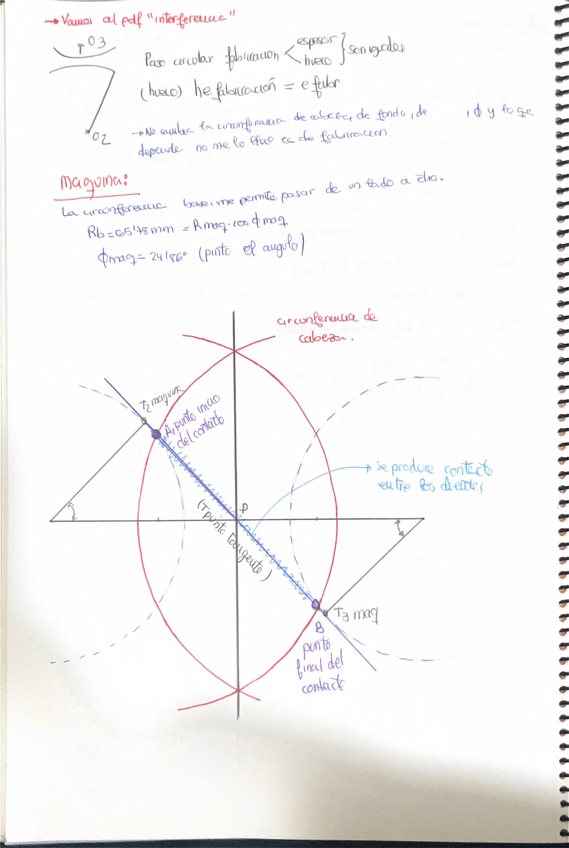 → Vamos al pdf "interferencia"
O3
Paso circular fabricación < espesor hueco } son iguales
(hueco) he fabricación = e fabr
O2
→ No cambia la circunferencia de cabeza, de fondo, de , ϕ y lo que
depende no me lo es de fabricación.
Maquina:
La circunferencia base me permite pasar de un lado a otro.
Rb = 65'78mm = Rmaq · cos ϕ maq
ϕmaq = 24'86° (pinto el angulo)
circunferencia de
cabeza.
T2 maquina
A, punto inicio
del contacto
→ se produce contacto
entre los dientes
P
(T punto tangente)
T3 maq
B
punto
final del
contacto